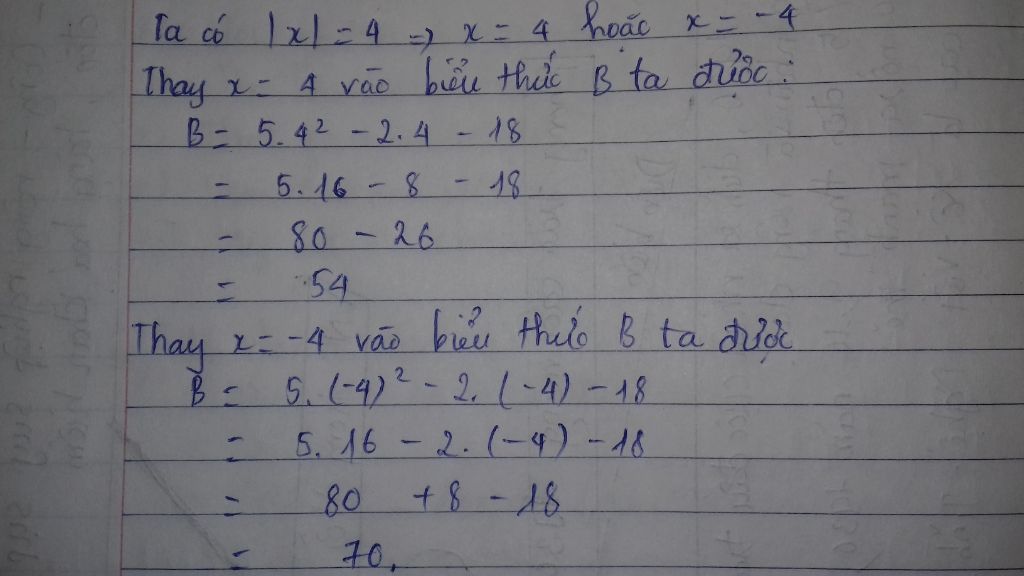 Ta có |x| = 4 => x = 4 hoặc x = -4
Thay x = 4 vào biểu thức B ta được:
B = 5.4² - 2.4 - 18
= 5.16 - 8 - 18
= 80 - 26
= 54
Thay x = -4 vào biểu thức B ta được
B = 5.(-4)² - 2.(-4) - 18
= 5.16 - 2.(-4) - 18
= 80 + 8 - 18
= 70.